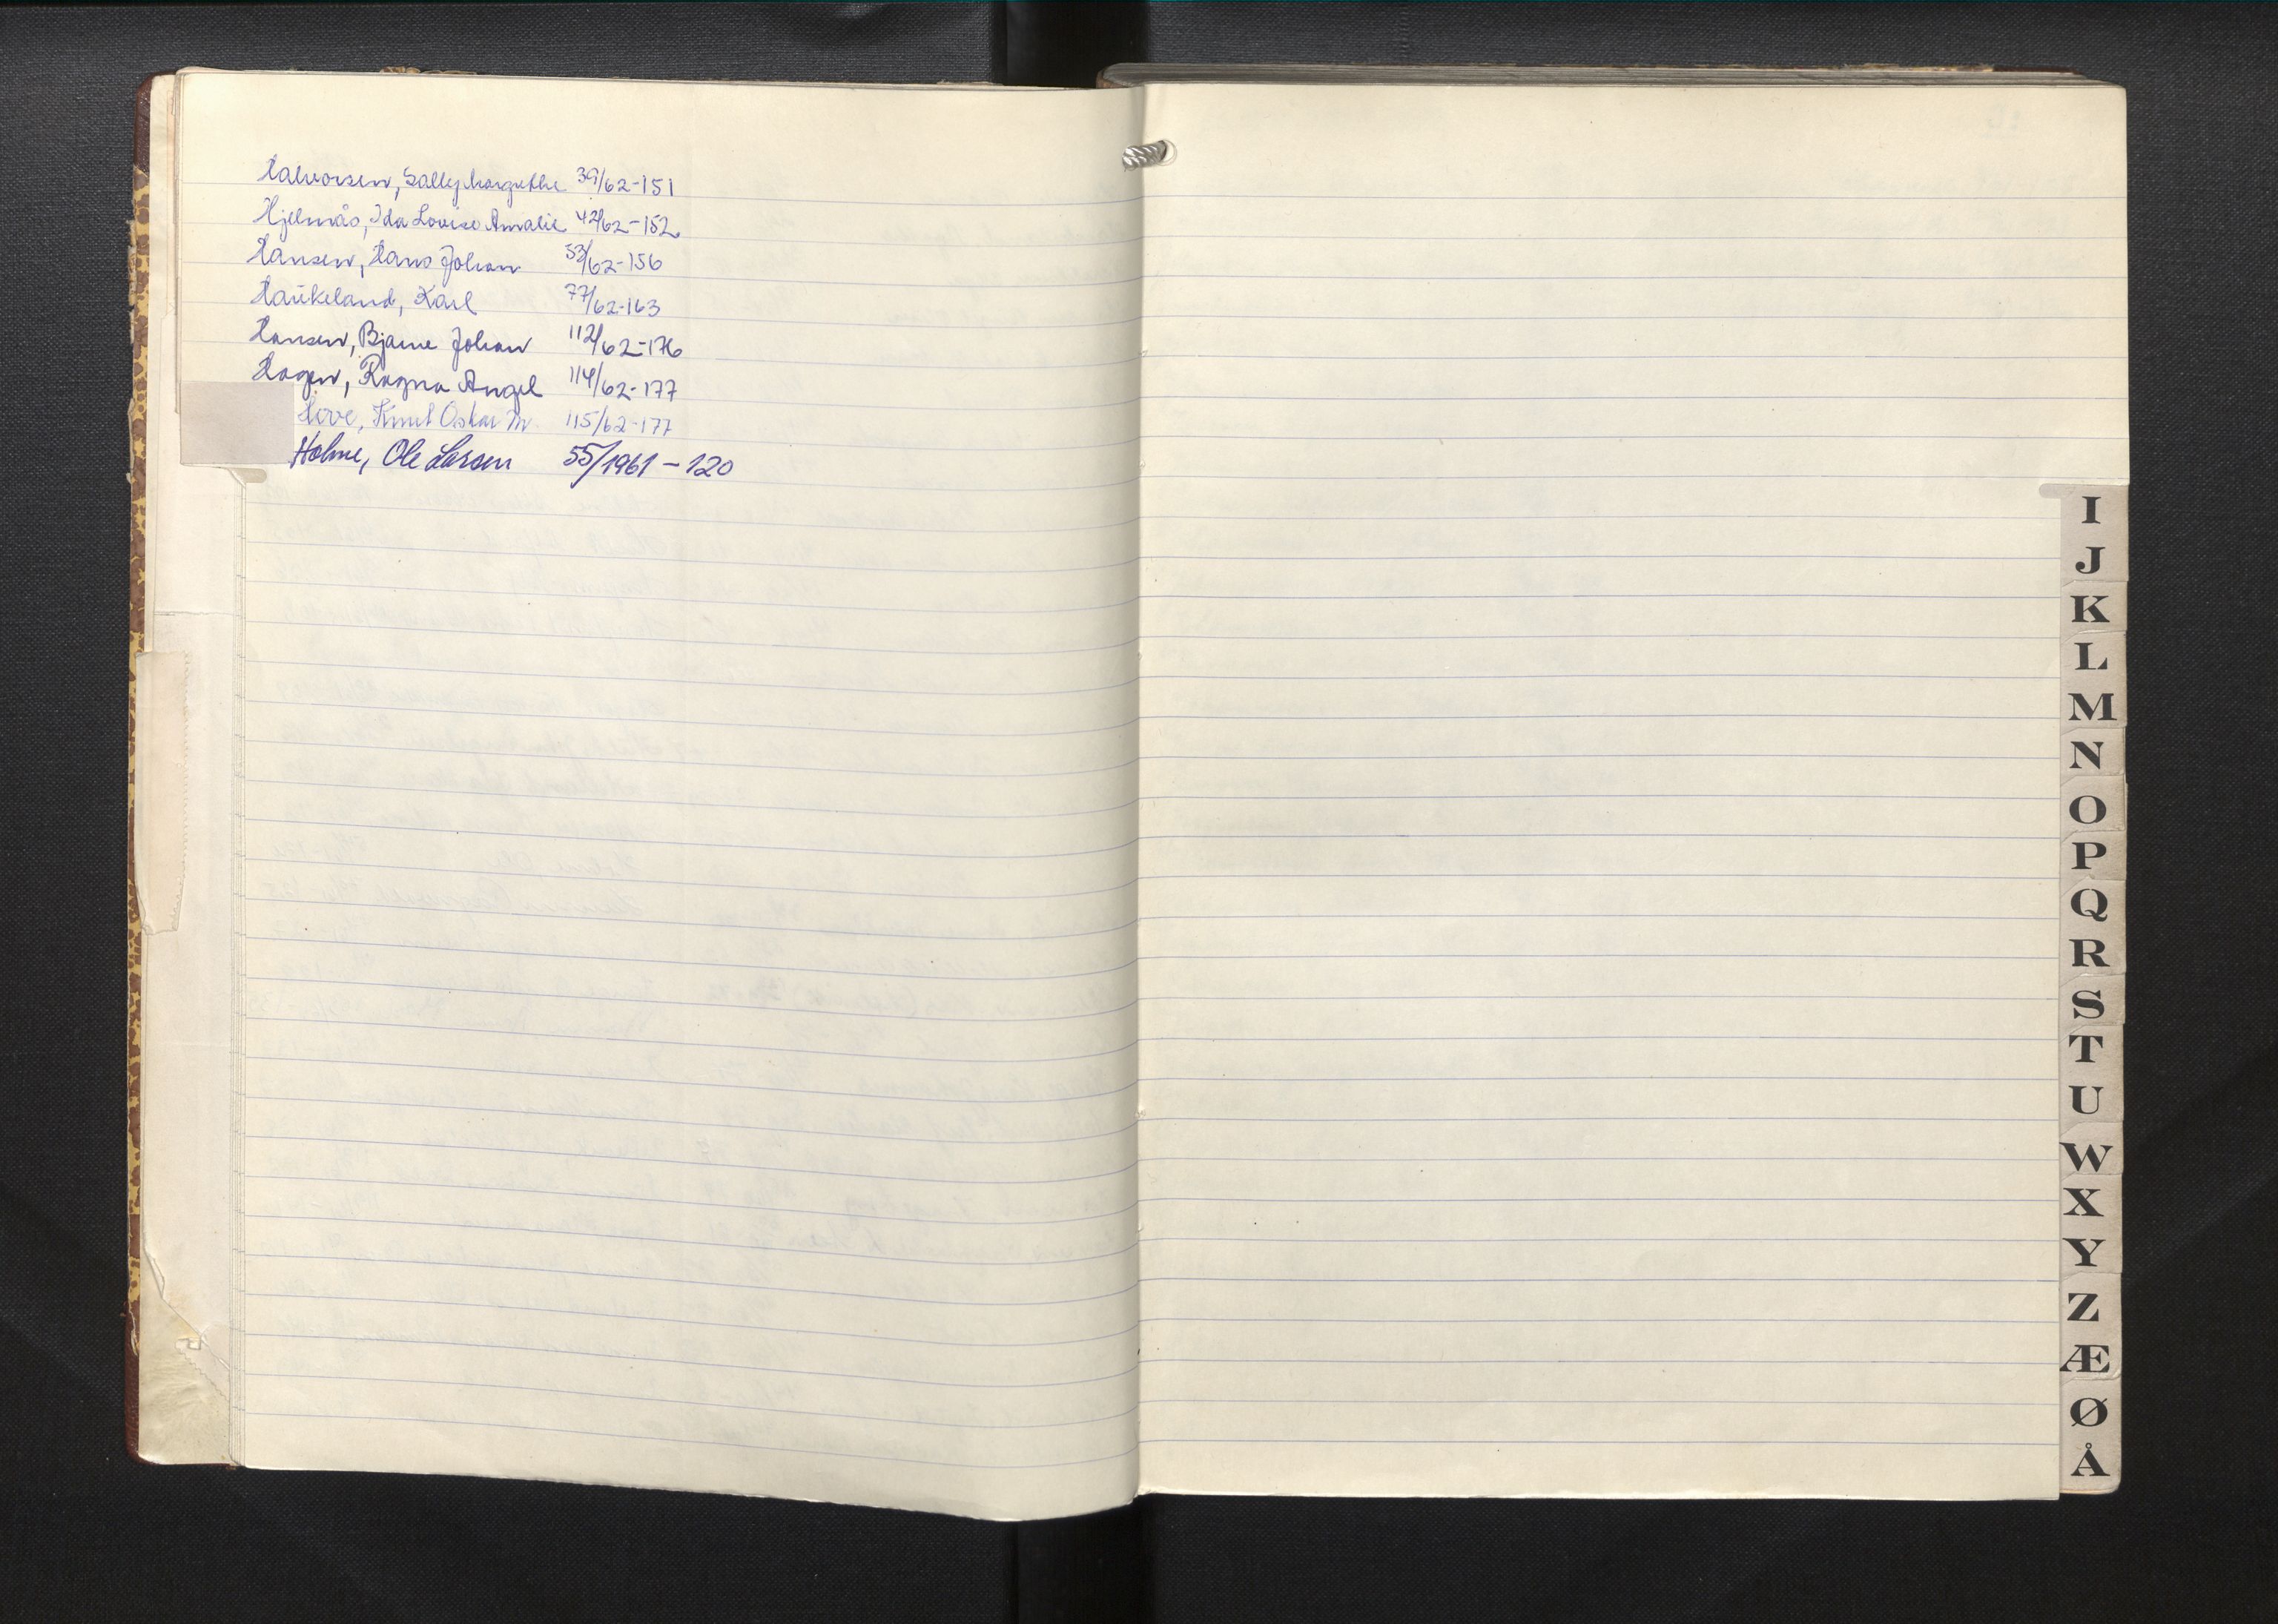 Halvorsen, Sally Margrethe 39/62-151
Hjelmås, Ida Lovise Amalie 42/62-152
Hansen, Hans Johan 53/62-156
Haukeland, Karl 77/62-163
Hansen, Bjarne Johan 112/62-176
Hagen, Ragna Angel 114/62-177
Hove, Knut Oskar M. 115/62-177
Holme, Ole Larsen 55/1961-120
I
J
K
L
M
N
O
P
Q
R
S
T
U
W
X
Y
Z
Æ
Ø
Å